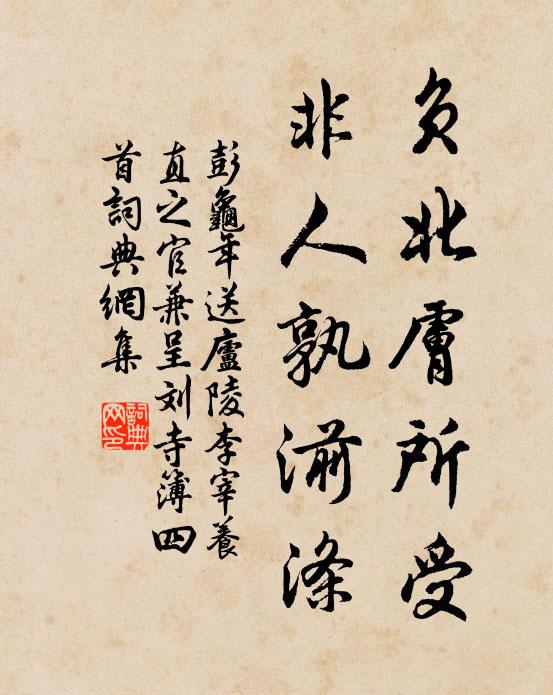 负此膚所受
非人孰湔滌
彭龜年送廬陵李宰養
直之官兼呈刘寺簿四
首詞典網集
詞典网印